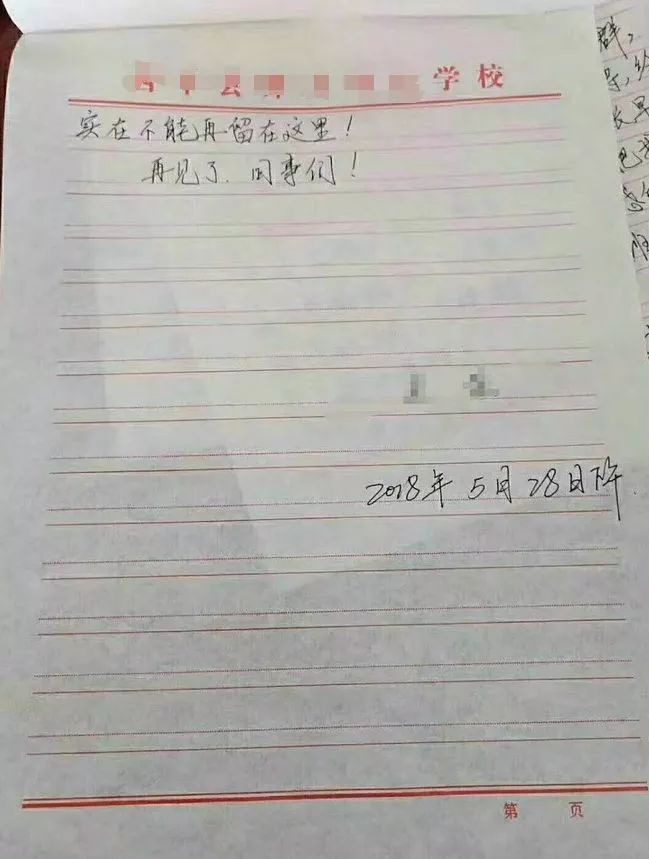 学校
实在不能再留在这里！
再见了．同事们！
2018年 5月28日下午．
第 页